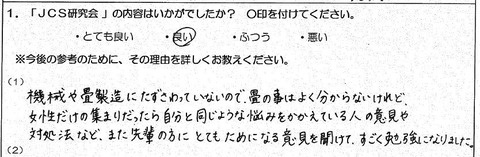 1．「ＪＣＳ研究会」の内容はいかがでしたか？　○印を付けてください。
・とても良い　・良い　・ふつう　・悪い
※今後の参考のために、その理由を詳しくお教えください。
(1)
機械や畳製造にたずさわっていないので、畳の事はよく分からないけれど、
女性だけの集まりだったら自分と同じような悩みをかかえている人の意見や
対処法など、また先輩の方にとてもためになる意見を聞けて、すごく勉強になりました。
(2)